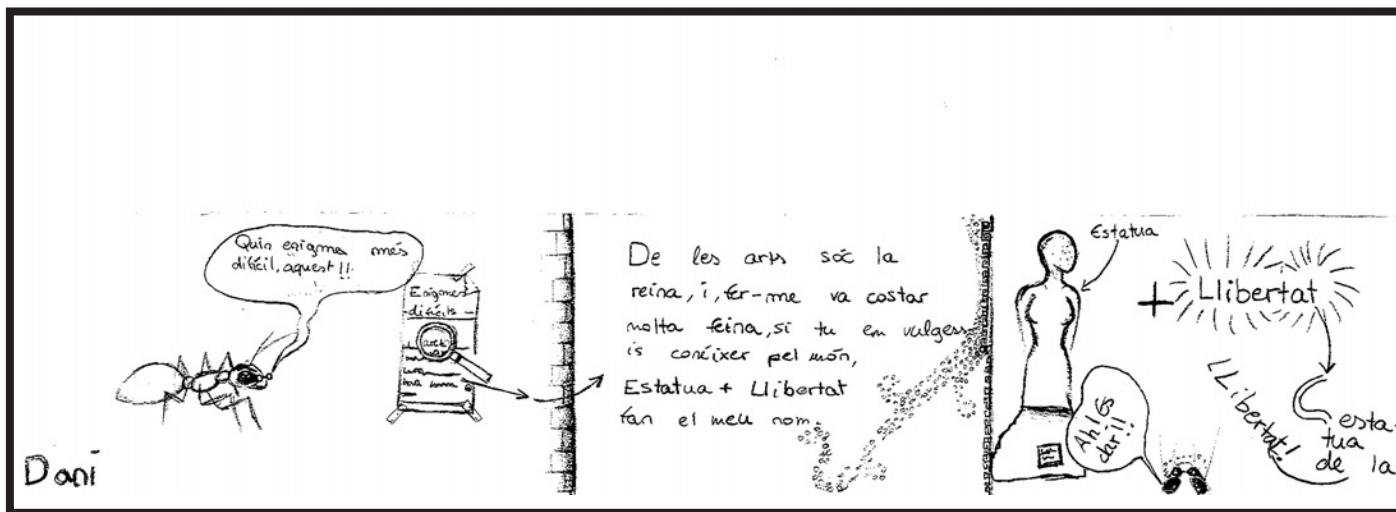 Quin enigma més
difícil, aquest!!
Enigmes
difícils
De les arts sóc la
reina, i, fer-me va costar
molta feina, si tu em vulgess-
is conéixer pel món,
Estatua + Llibertat
fan el meu nom.
Estatua
+ Llibertat
Ah! és
clar!!
esta-
tua
de la
Llibertat!
Dani